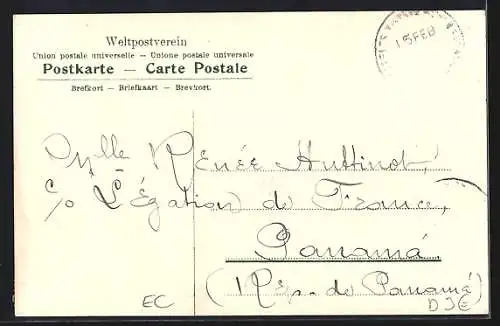 Weltpostverein
Union postale universelle — Unione postale universale
Postkarte — Carte Postale
Brefkort — Briefkaart — Brevkort.
15 FEB
Mlle Renée Huttinot,
c/o Légation de France,
Panamá
(Rép. de Panamá)
EC